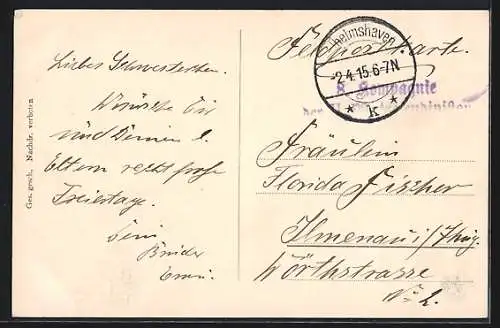 Ges. gesch. Nachdr. verboten
Liebes Schwesterchen.
Wünsche Dir
und Deinen l.
Eltern recht frohe
Feiertage.
Dein
Bruder
Feldpostkarte.
Wilhelmshaven
-2.4.15.6-7N
* k *
8. Kompagnie
der
Fräulein
Florida Fischer
Ilmenau i/Thür.
Wörthstrasse
No 2.